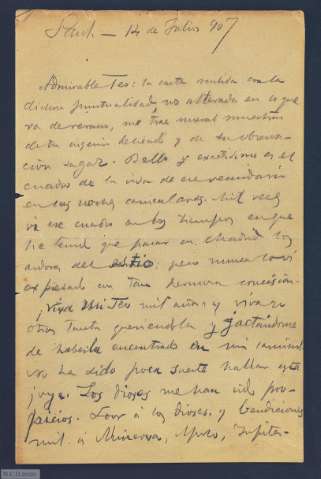 Sant — 14 de Julio 907
Admirable Teo: la carta recibida con la
dichosa puntualidad, no alterada en lo que
va de verano, me trae nuevas muestras
de tu ingenio delicado y de tu observa-
ción sagaz. Bello y exactísimo es el
cuadro de la vida de ese vecindario
en las noches caniculares. Mil veces
vi ese cuadro en los tiempos en que
he tenido que pasar en Madrid los
ardores del estío: pero nunca lo vi
expresado con tan hermosa concisión.
¡Viva mi Teo mil años y viva yo
otros tantos queriendola y jactándome
de haberla encontrado en mi camino!
No ha sido poca suerte hallar esta
joya. Los dioses me han sido pro-
picios. Loor á los dioses, y bendiciones
mil á Minerva, Apolo, Jupiter